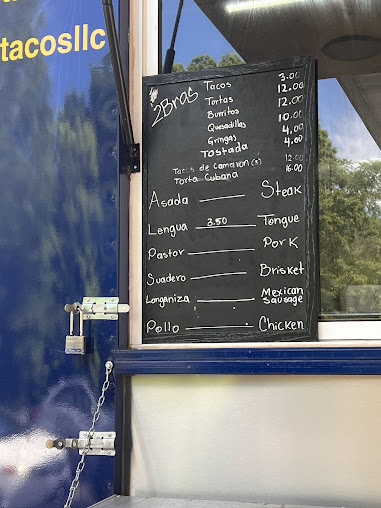 tacosllc
2Bros
Tacos 3.00
Tortas 12.00
Burritos 12.00
Quesadillas 10.00
Gringas 4.00
Tostada 4.00
Tacos de Camaron(3) 12.00
Torta Cubana 16.00
Asada Steak
Lengua 3.50 Tongue
Pastor Pork
Suadero Brisket
Longaniza Mexican Sausage
Pollo Chicken